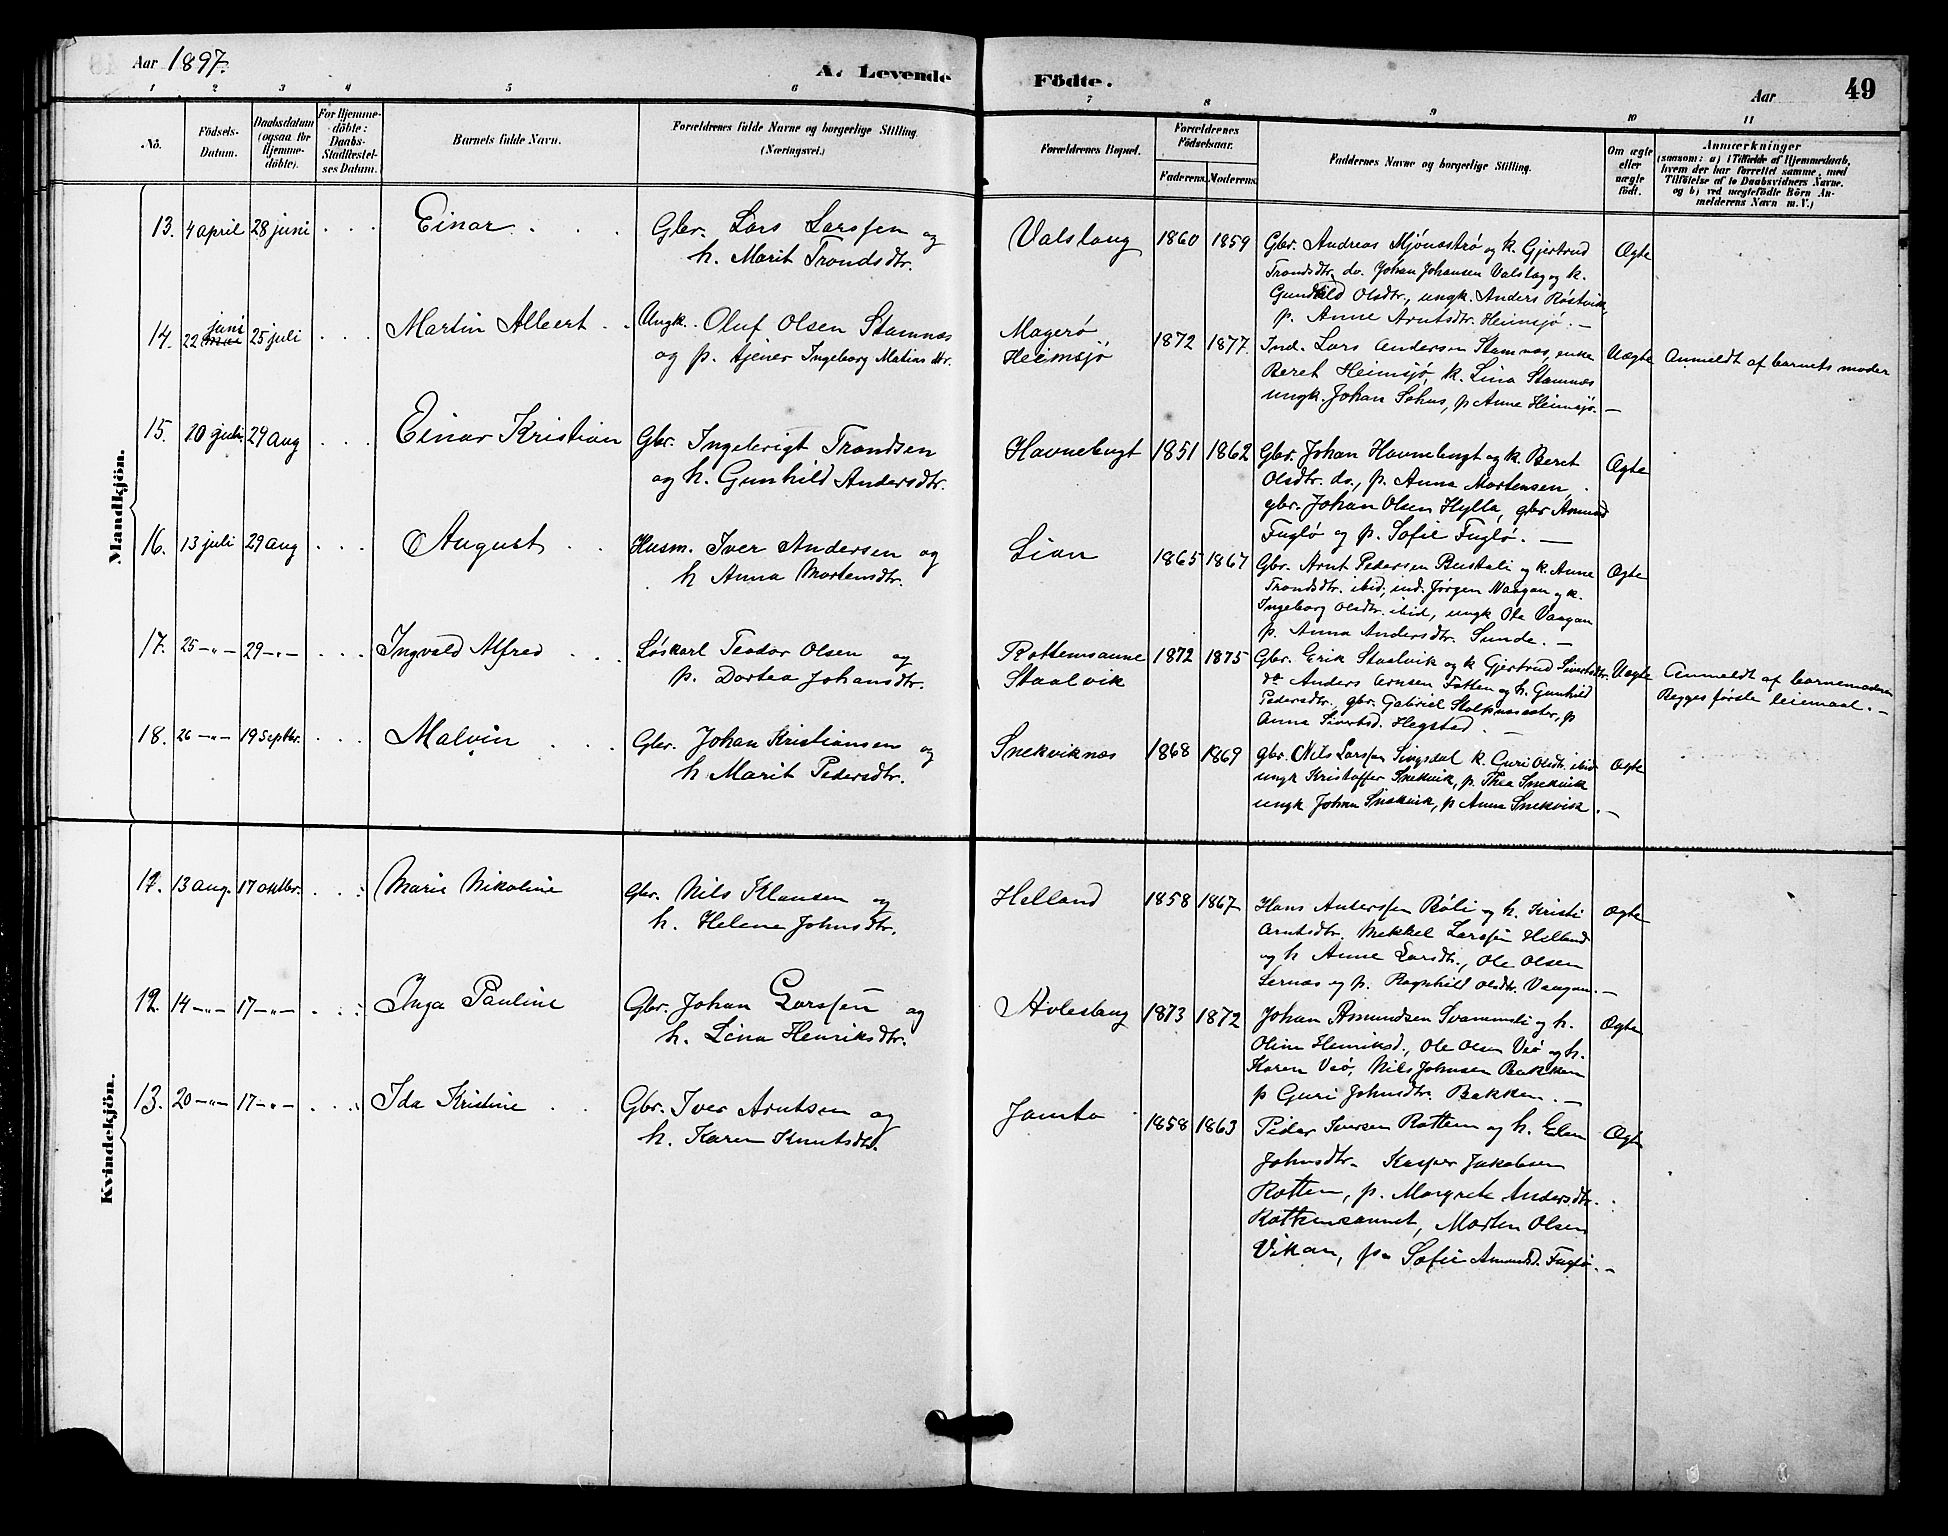 Aar 1897.
A. Levende Födte.
Aar
49
1 2 3 4 5 6 7 8 9 10 11
No.
Födsels-Datum.
Daabsdatum (ogsaa for Hjemme-döbte).
For Hjemme-döbte: Daabs-Stadfæstel-ses Datum.
Barnets fulde Navn.
Forældrenes fulde Navne og borgerlige Stilling. (Næringsvei.)
Forældrenes Bopæl.
Forældrenes Födselsaar.
Faderens. Moderens.
Faddernes Navne og borgerlige Stilling.
Om ægte eller uægte födt.
Anmærkninger
(saasom: a) i Tilfælde af Hjemmedaab,
hvem der har forrettet samme, med
Tilföielse af to Daabsvidners Navne.
og b) ved uægtefödte Börn An-
melderens Navn m. V.)
Mandkjön.
13. 4 april 28 juni Einar Gbr. Lars Larssen og
h. Marit Trondsdtr.
Valslag 1860 1859 Gbr. Andreas Mjønestrø og k. Gjertrud
Trondsdtr. dv. Johan Johansen Valslag og k.
Gunhild Olsdtr., ungk. Anders Røstvik,
p. Anne Arntsdtr. Heimsjø. —
Ægte
14. 22 mai juni 25 juli Martin Albert Ungk. Oluf Olsen Stamnes
og p. tjener Ingeborg Matiasdtr.
Magerø
Heimsjø 1872 1877. Ind. Lars Andersen Stamnes, enke
Beret Heimsjø, k. Lina Stamnes
ungk. Johan Sehus, p Anne Heimsjø. —
Uægte Anmeldt af barnets moder
15. 20 juli 29 aug Einar Kristian Gbr. Ingebrigt Trondsen
og h. Gunhild Andersdtr.
Havnebugt 1851 1862 Gbr. Johan Havnebugt og k. Beret
Olsdtr. ds., p. Anna Mortensen,
gbr. Johan Olsen Hylla, gbr Amund
Fuglø og p. Sofie Fuglø. —
Ægte
16. 13 juli 29 aug August Husm. Iver Andersen og
h Anna Mortensdtr.
Lian 1865 1867 Gbr. Arnt Pedersen Bustali og k. Anne
Trondsdtr. ibid, ind. Jørgen Vaagan og k.
Ingeborg Olsdtr. ibid, ungk Ole Vaagan
p. Anna Andersdtr. Sunde. —
Ægte
17. 25 —"— 29 —"— Ingvald Alfred Løskarl Teodor Olsen og
p. Dortea Johansdtr.
Rottemsanne
Staalvik 1872 1875 Gbr. Erik Staalvik og k Gjertrud Sivertsdtr.
ds Anders Arnsen Fatten og h. Gunhild
Pedersdtr., gbr. Gabriel p
Anna Sivertsd. Hegstad. —
Uægte Anmeldt af barnemoderen
Begges første leiemaal. —
18. 26 —"— 19 septbr. Malvin Gbr. Johan Kristiansen og
h Marit Pedersdtr.
Snekviknes 1868 1869 gbr. Nils Larssen Singsdal k. Guri Olsdtr. ibid
ungk Kristoffer Snekvik, p. Thea Snekvik
ungk Johan Snekvik, p Anna Snekvik. —
Ægte
Kvindekjön.
17. 13 aug. 17 oktbr. Marie Nikoline Gbr. Nils Klausen og
h. Helene Johnsdtr.
Helland 1858 1867 Hans Anderssen Røli og h. Kristi
Arntsdtr. Mekkel Larssen Helland
og h Anne Larsdtr., Ole Olsen
Lernes og p. Ragnhild Olsdtr. Vaagan. —
Ægte
12. 14 —"— 17 —"— Inga Pauline Gbr. Johan Larssen og
h. Lina Henriksdtr.
Avleslaug 1873 1872 Johan Amundsen Svanemli og h.
Oline Henriksd., Ole Olsen Veø og h.
Karen Veø, Nils Johnsen Bakken
p Guri Johnsdtr. Bakken. —
Ægte
13. 20 —"— 17 —"— Ida Kristine Gbr. Iver Arntsen og
h. Karen Knutsdtr.
Jamta 1858 1863 Peder Iversen Rottem og h. Elen
Johnsdtr. Kasper Jakobsen
Rottem, p. Margrete Andersdtr.
Rottemsannet, Morten Olsen
Vikan, p. Sofie Amundsd. Fuglø. —
Ægte